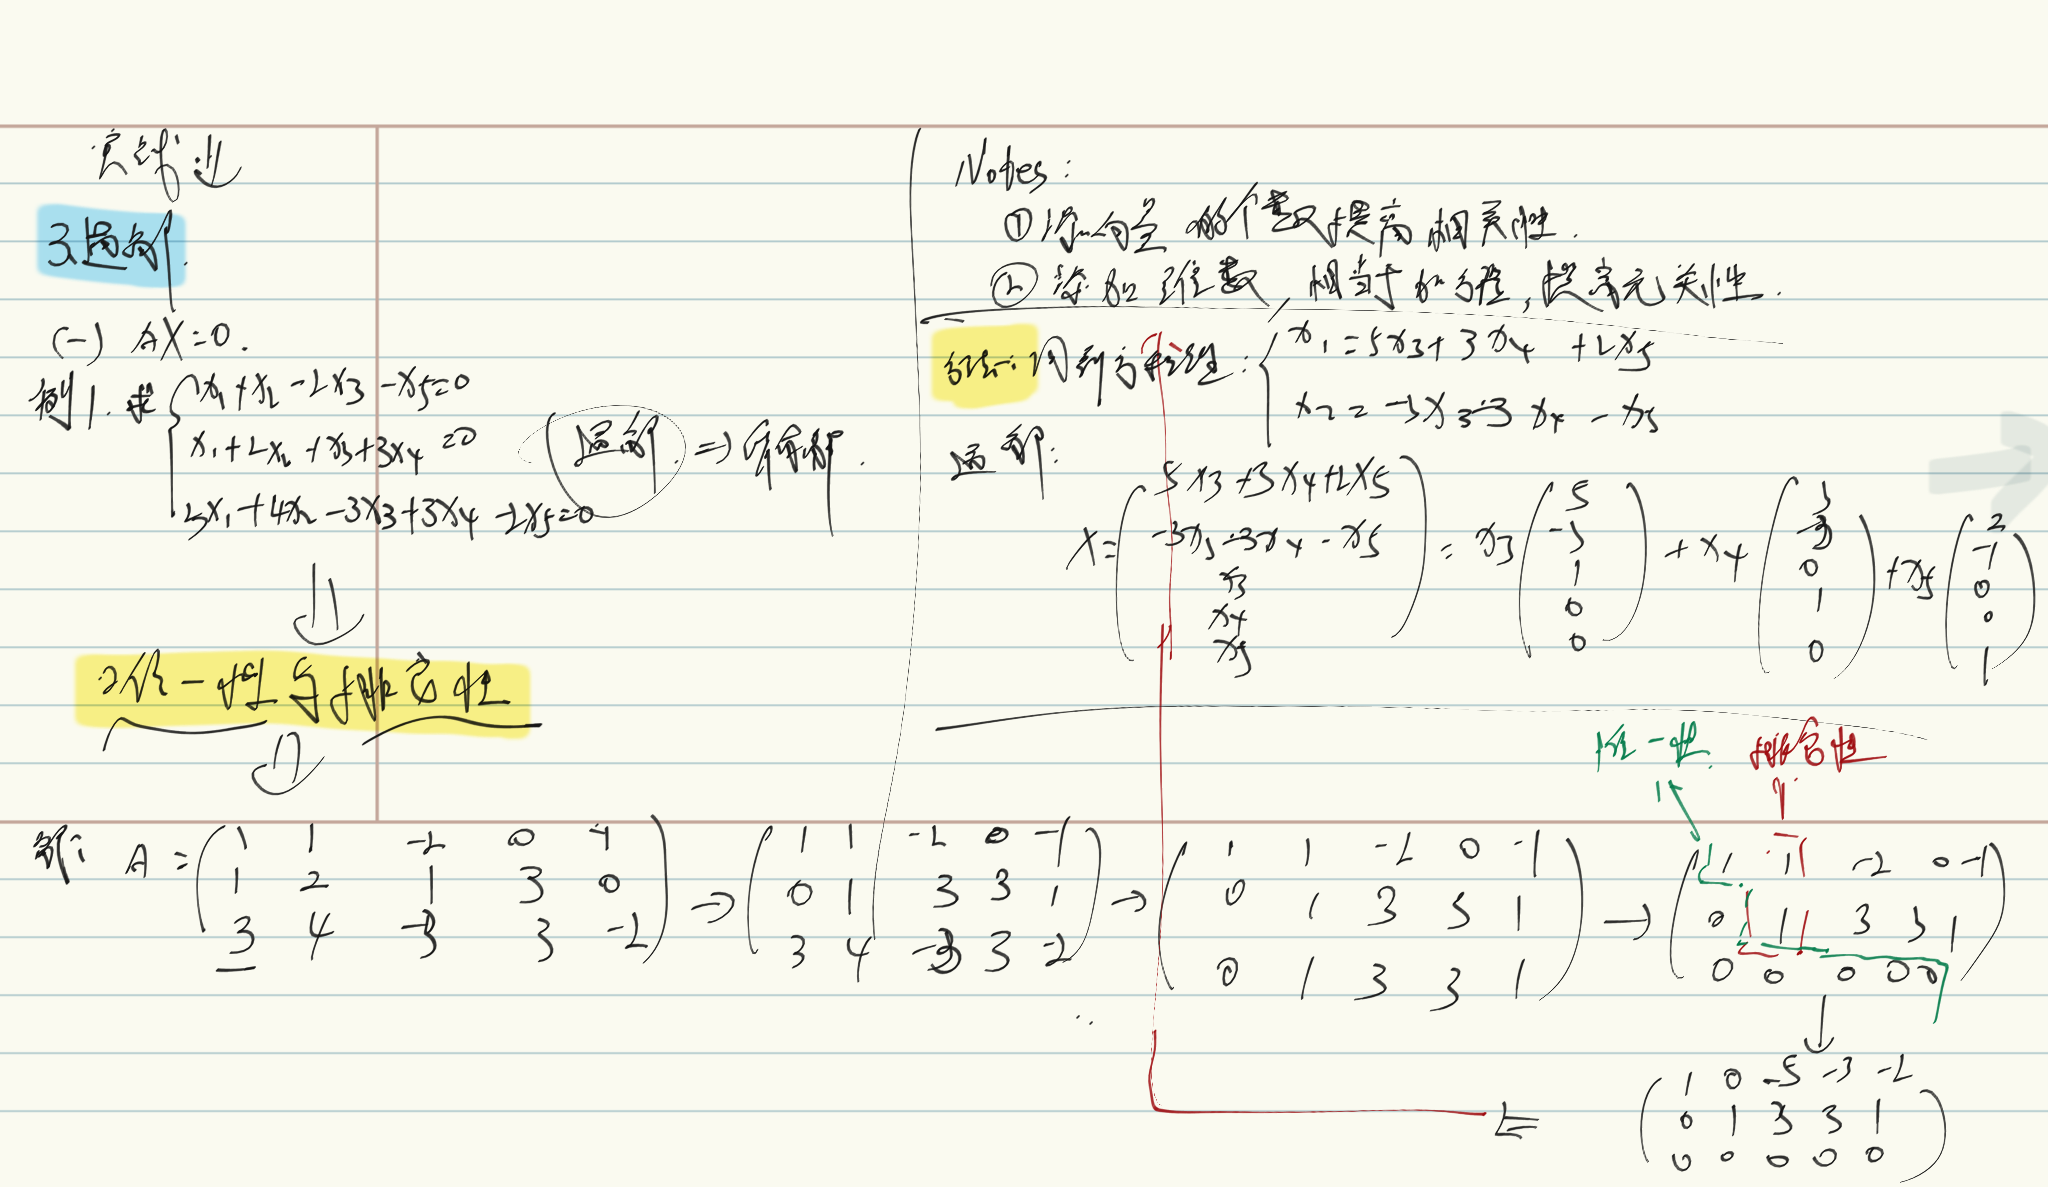 3.通解.
(一) AX=0.
例1. 求 { x₁+x₂-2x₃-x₅=0
x₁+2x₂+x₃+3x₄=0
3x₁+4x₂-3x₃+3x₄-2x₅=0
通解 ⇒ 所有解.
⇓
唯一性与排它性
⇓
Notes:
① 添加向量的个数提高相关性.
② 添加维数, 相当于加方程, 提高无关性.
方法一: 同列方程组: { x₁=5x₃+3x₄+2x₅
x₂=-3x₃-3x₄-x₅
通解:
X= ( 5x₃+3x₄+2x₅ -3x₃-3x₄-x₅ x₃ x₄ x₅ ) = x₃ ( 5 -3 1 0 0 ) + x₄ ( 3 -3 0 1 0 ) + x₅ ( 2 -1 0 0 1 )
唯一性. 排它性
解: A = ( 1 1 -2 0 -1
1 2 1 3 0
3 4 -3 3 -2 )
→ ( 1 1 -2 0 -1
0 1 3 3 1
3 4 -3 3 -2 )
→ ( 1 1 -2 0 -1
0 1 3 3 1
0 1 3 3 1 )
→ ( 1 1 -2 0 -1
0 1 3 3 1
0 0 0 0 0 )
↓
( 1 0 -5 -3 -2
0 1 3 3 1
0 0 0 0 0 )